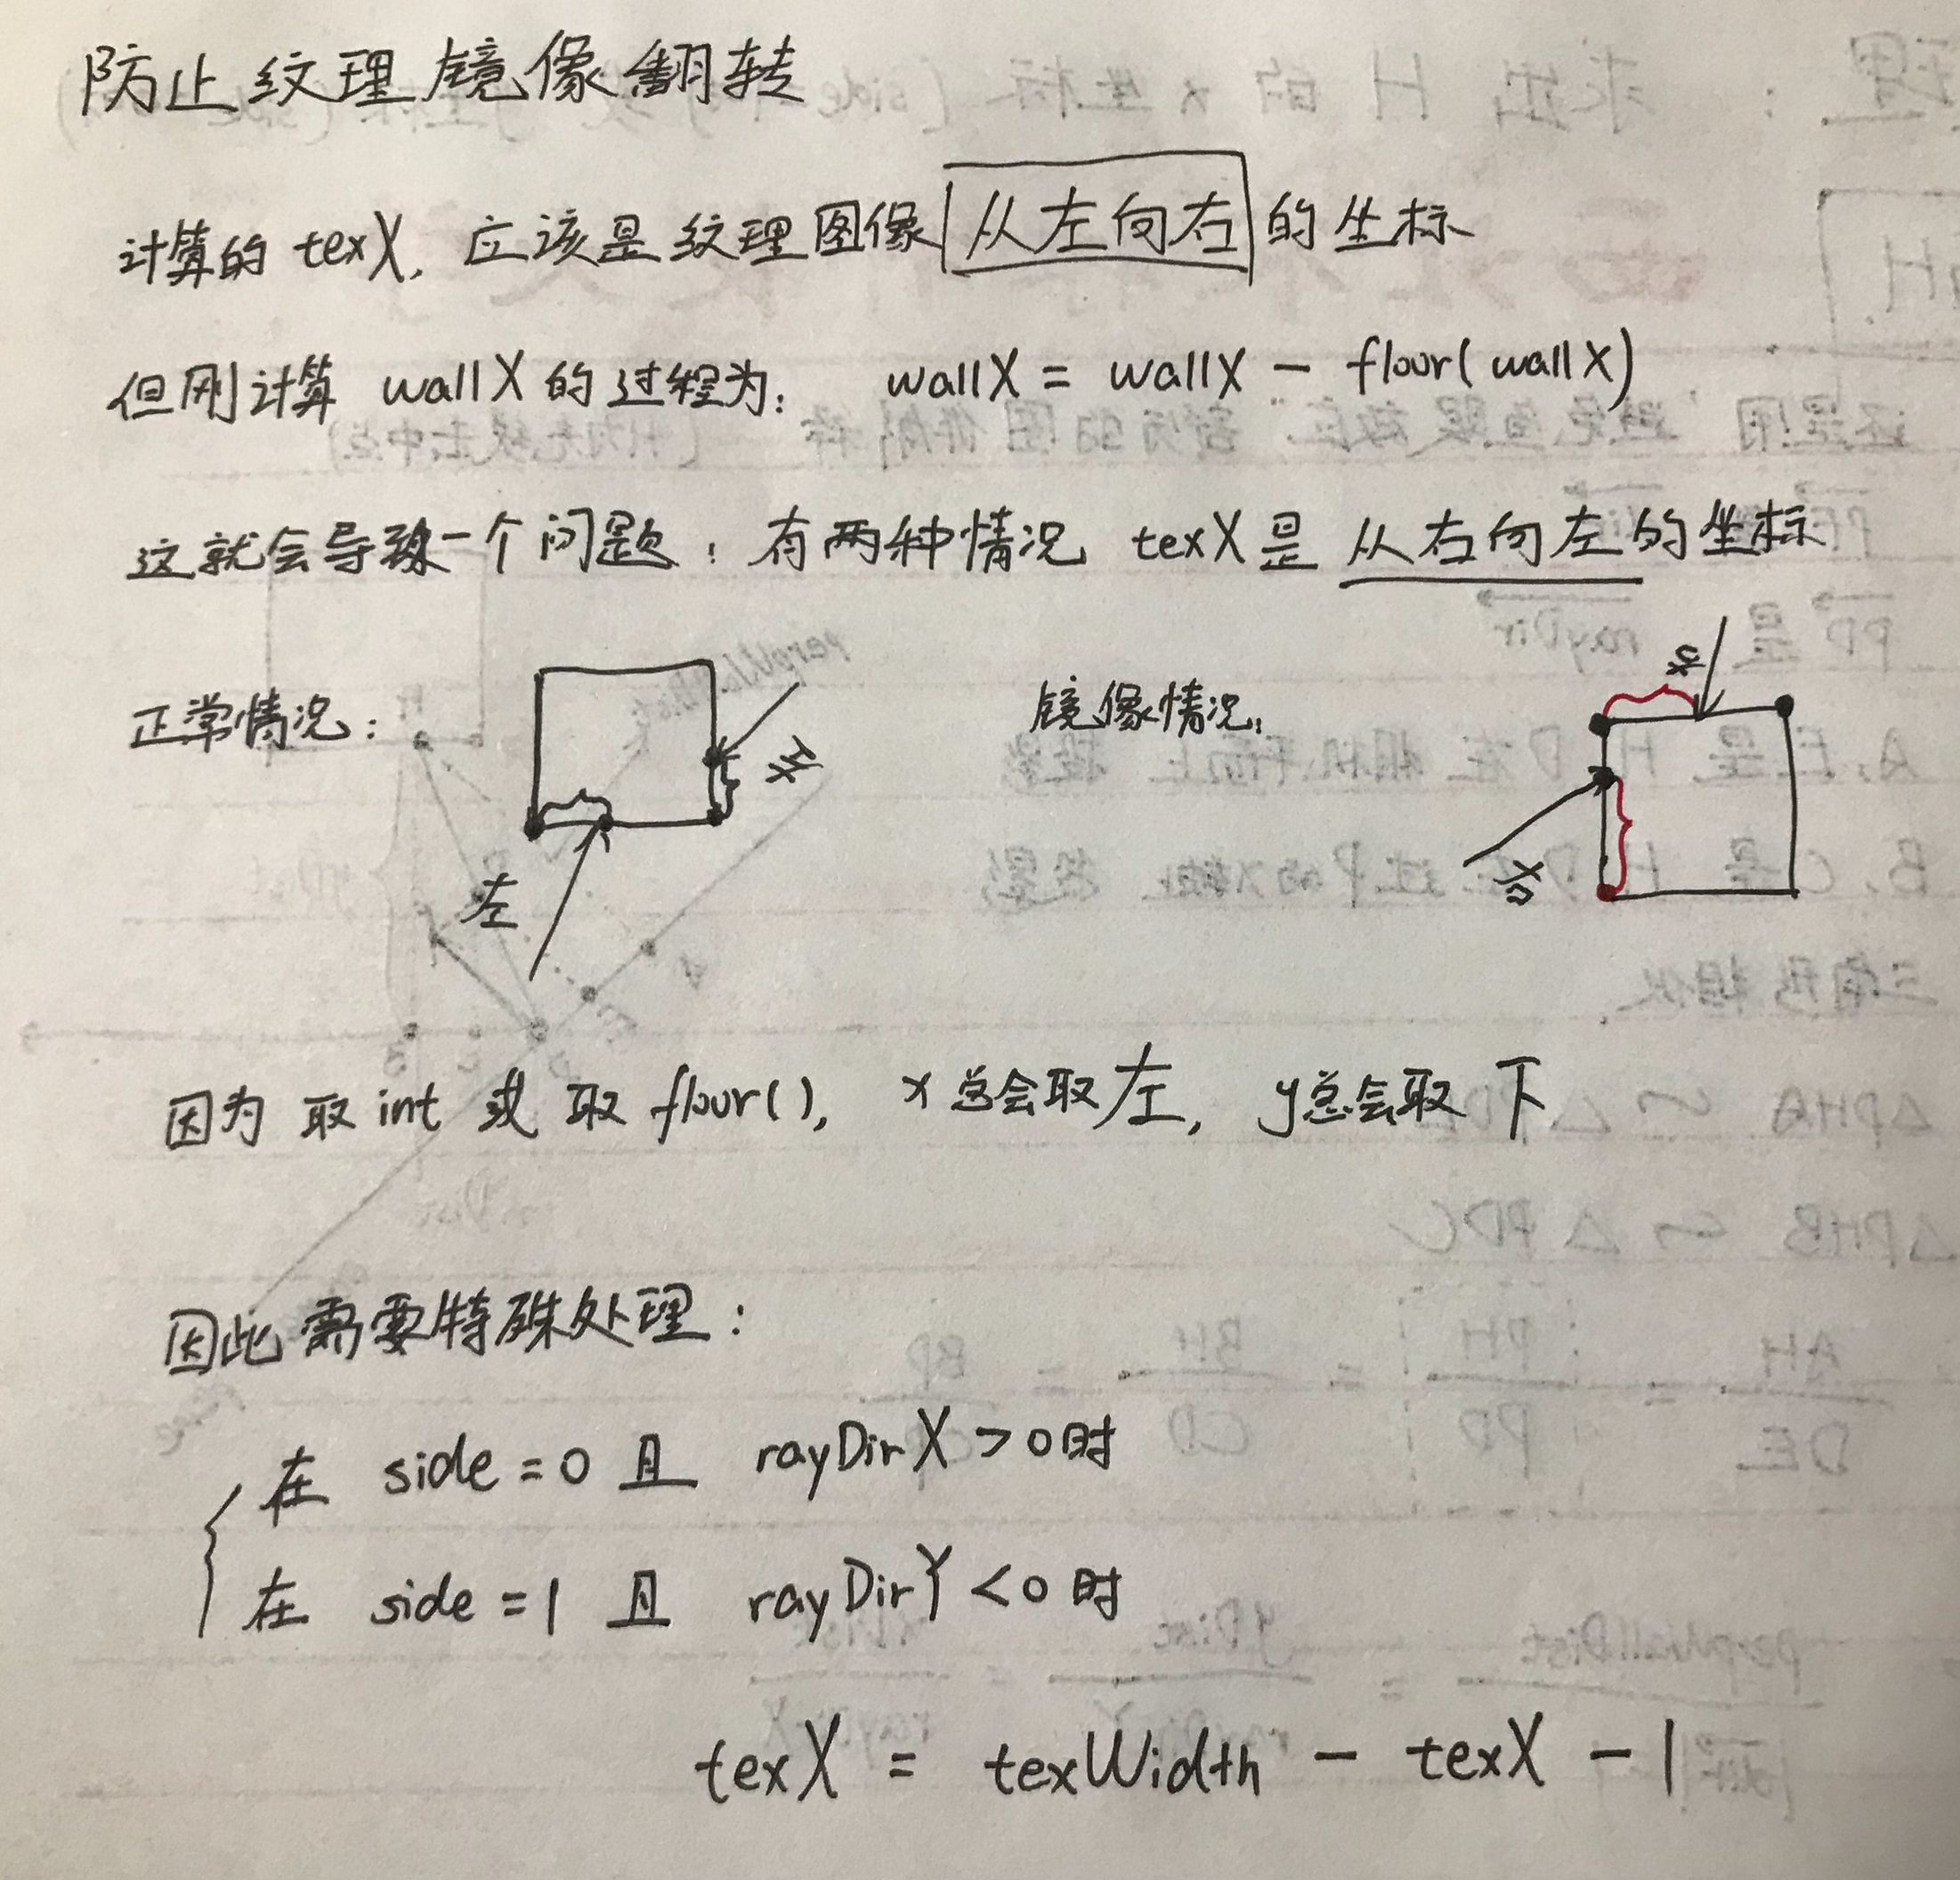 防止纹理镜像翻转
计算的 texX, 应该是纹理图像 从左向右 的坐标
但刚计算 wallX 的过程为: wallX = wallX - floor( wallX)
这就会导致一个问题: 有两种情况 texX是 从右向左的坐标
正常情况:
左
镜像情况:
因为 取 int 或 取 floor(), x 总会取左, y总会取 下
因此需要特殊处理:
在 side = 0 且 rayDirX > 0时
在 side = 1 且 rayDirY < 0 时
texX = texWidth - texX - 1